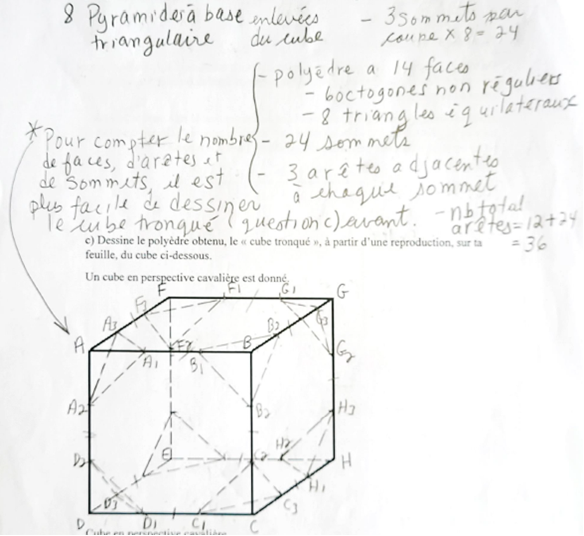 8 Pyramides à base enlevées - 3 sommets par
triangulaire du cube coupe x 8 = 24
- polyèdre a 14 faces
- 6 octogones non réguliers
- 8 triangles équilatéraux
* Pour compter le nombre - 24 sommets
de faces, d'arêtes et - 3 arêtes adjacentes
de sommets, il est à chaque sommet
plus facile de dessiner - nb total
le cube tronqué (question c) avant. arêtes = 12 + 24
= 36
c) Dessine le polyèdre obtenu, le « cube tronqué », à partir d'une reproduction, sur ta
feuille, du cube ci-dessous.
Un cube en perspective cavalière est donné.
F F1 G1 G
A3 B3 G3
A A1 F2 B1 B G2
A2 B2 H3
D2 E C2 H2 H
D3 H1
D D1 C1 C C3
Cube en perspective cavalière